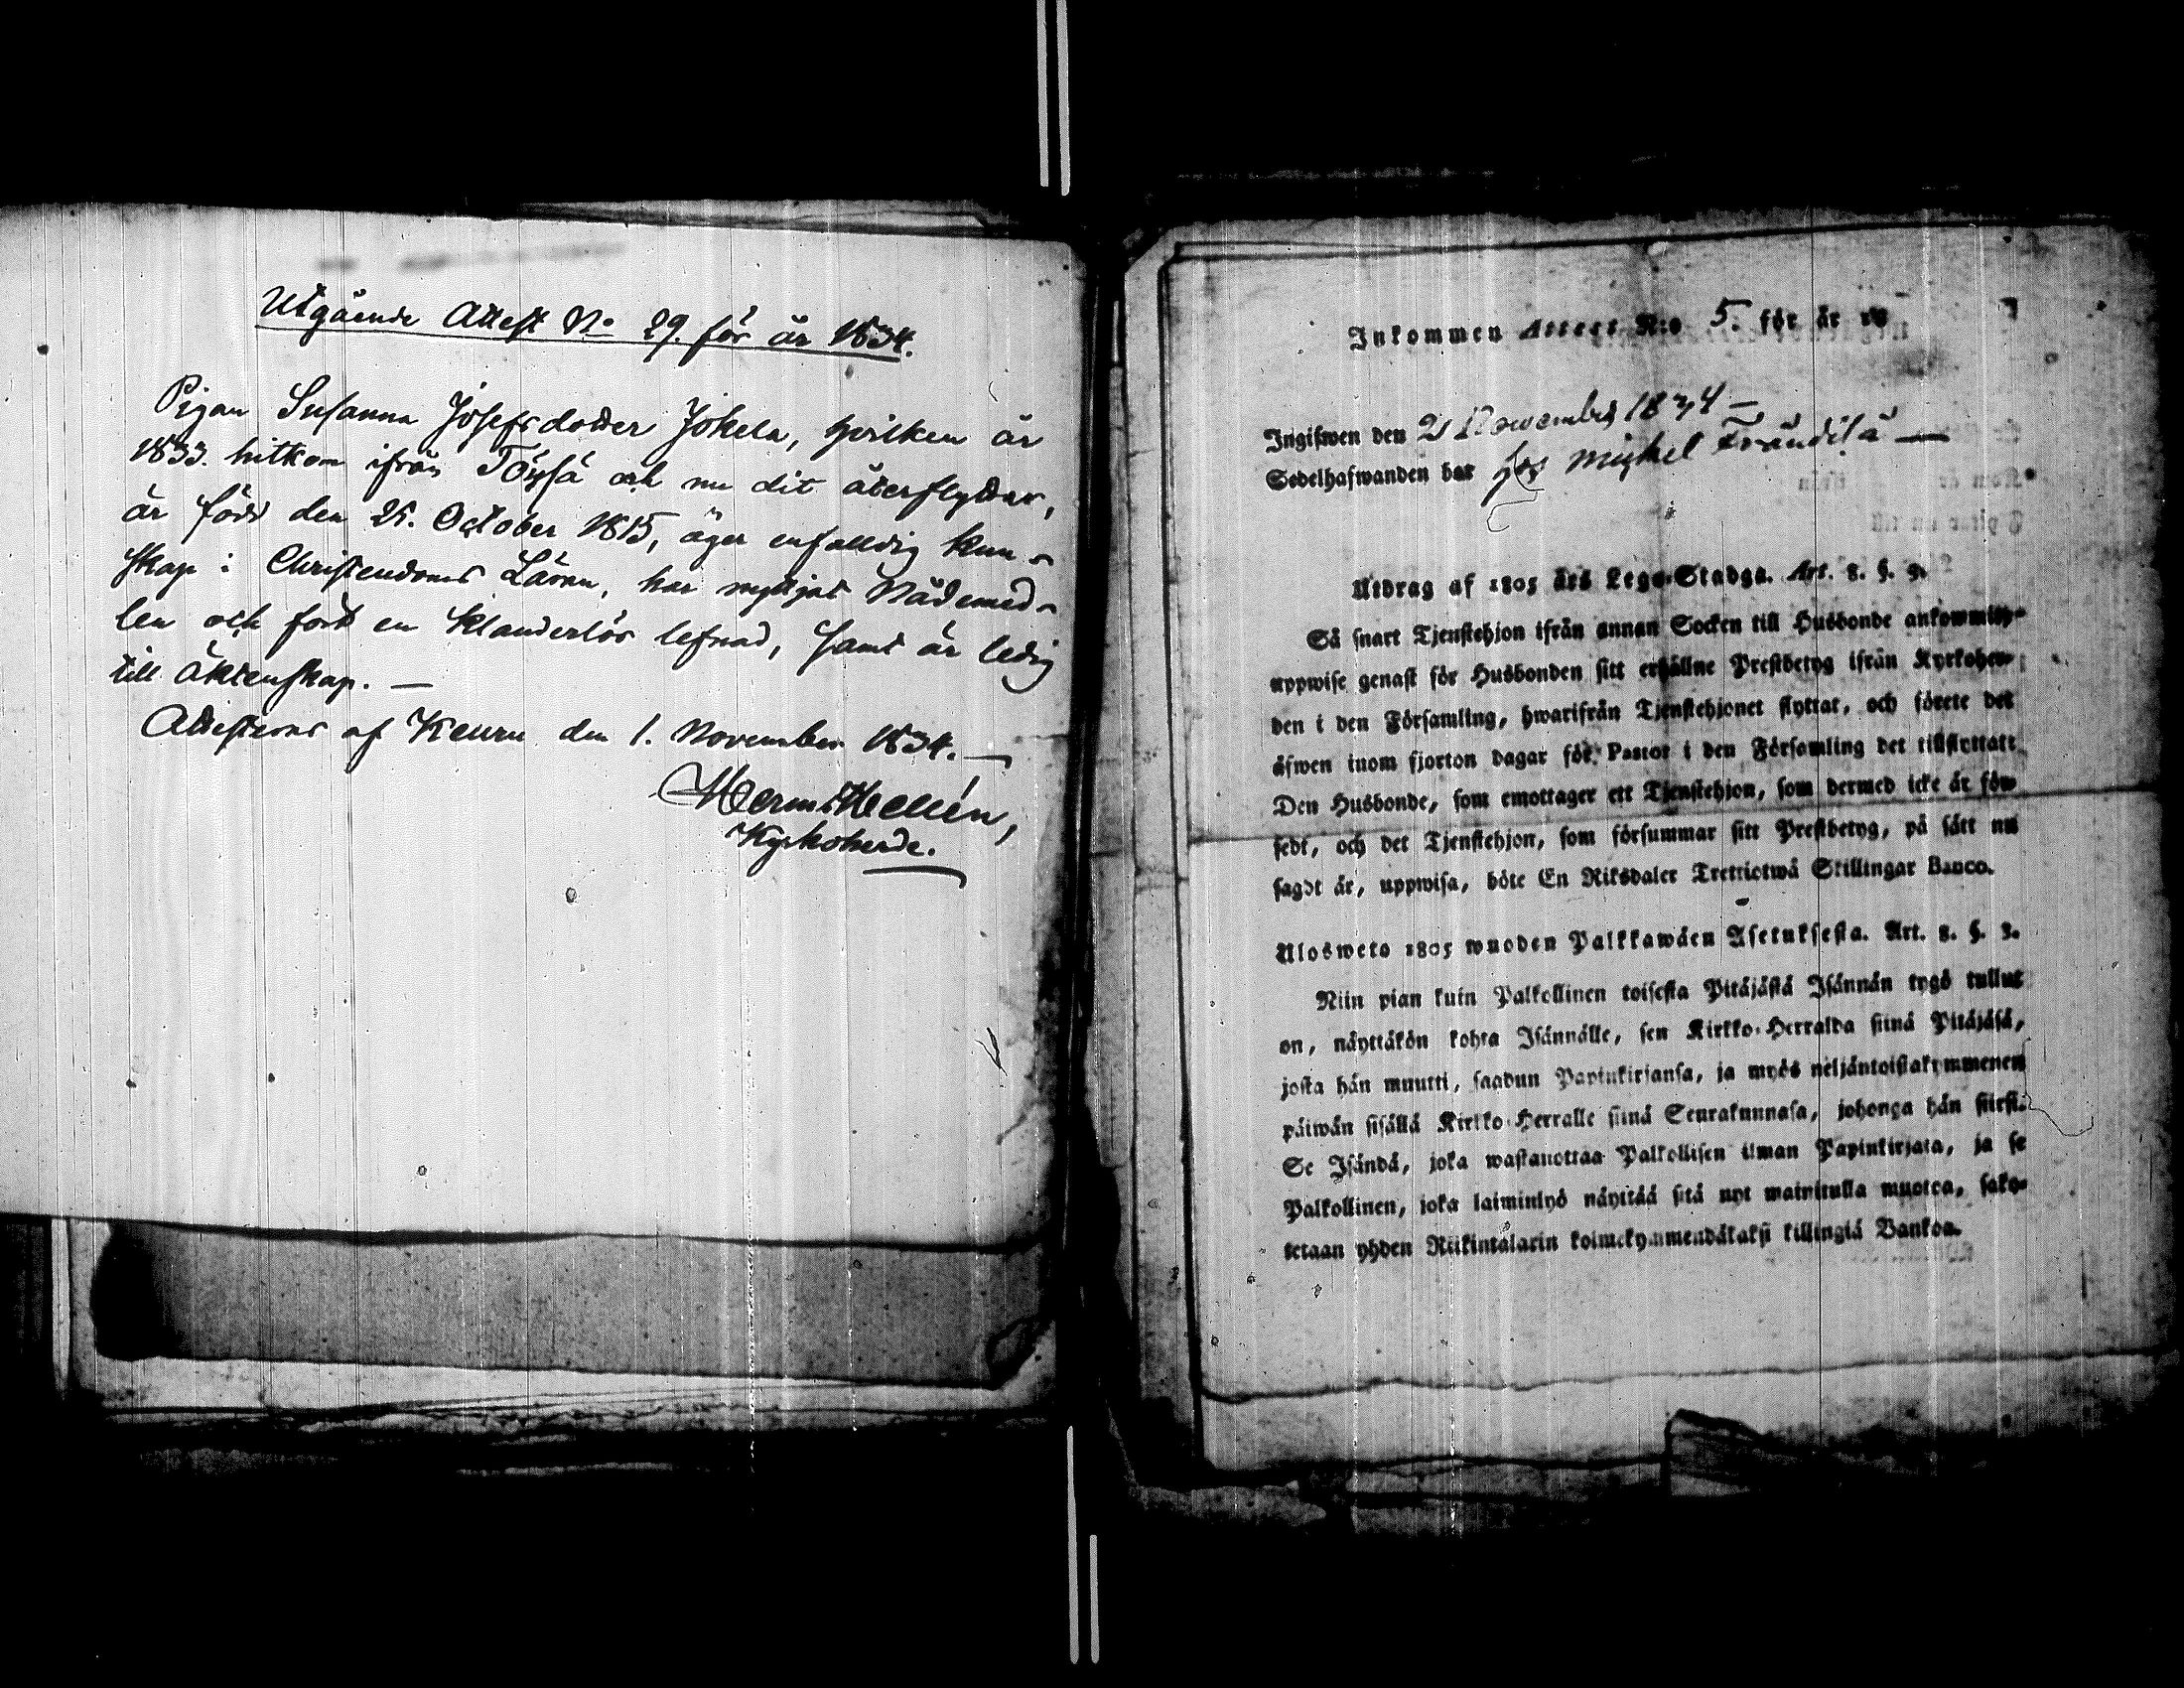 Utgående Attest No 29. för år 1834.
Pigan Susanna Josefsdotter Jokela, hvilken år
1833. hitkom ifrån Töysä och nu dit återflyttar,
är född den 25. October 1815, äger enfalldig kun-
skap i Christendoms Läran, har nyttjat Nådemed-
len och fört en klanderlös lefnad, samt är ledig
till Äktenskap. —
Attesteras af Keuru den 1. November 1834. —
Herm: Hellén,
Kyrkoherde.
Inkommen Attest N:o 5. för år 18
Ingifwen den 2 November 1834 —
Sedelhafwanden har hos Michel Frändilä —
Utdrag af 1805 års Lego-Stadga. Art. 8. §. 3.
Så snart Tjenstehjon ifrån annan Socken till Husbonde ankommit,
uppwise genast för Husbonden sitt erhållne Prestbetyg ifrån Kyrkoher-
den i den Församling, hwarifrån Tjenstehjonet flyttat, och förete det
äfwen inom fjorton dagar för Pastor i den Församling det tillflyttatt.
Den Husbonde, som emottager ett Tjenstehjon, som dermed icke är för-
sedt, och det Tjenstehjon, som försummar sitt Prestbetyg, på sätt nu
sagdt är, uppwisa, böte En Riksdaler Trettiotwå Skillingar Banco.
Ulosweto 1805 wuoden Palkkawäen Asetuksesta. Art. 8. §. 3.
Niin pian kuin Palkollinen toisesta Pitäjästä Isännän tygö tullut
on, näyttäkön kohta Isännälle, sen Kirkko-Herralda siinä Pitäjäsä,
josta hän muutti, saadun Papinkirjansa, ja myös neljäntoistakymmenen
päiwän sisällä Kirkko-Herralle siinä Seurakunnasa, johonga hän siirsi.
Se Isändä, joka wastanottaa Palkollisen ilman Papinkirjata, ja se
Palkollinen, joka laiminlyö näyttää sitä nyt mainitulla muotoa, sako-
tetaan yhden Riikintalarin kolmekymmendäkaksi killingiä Bankoa.